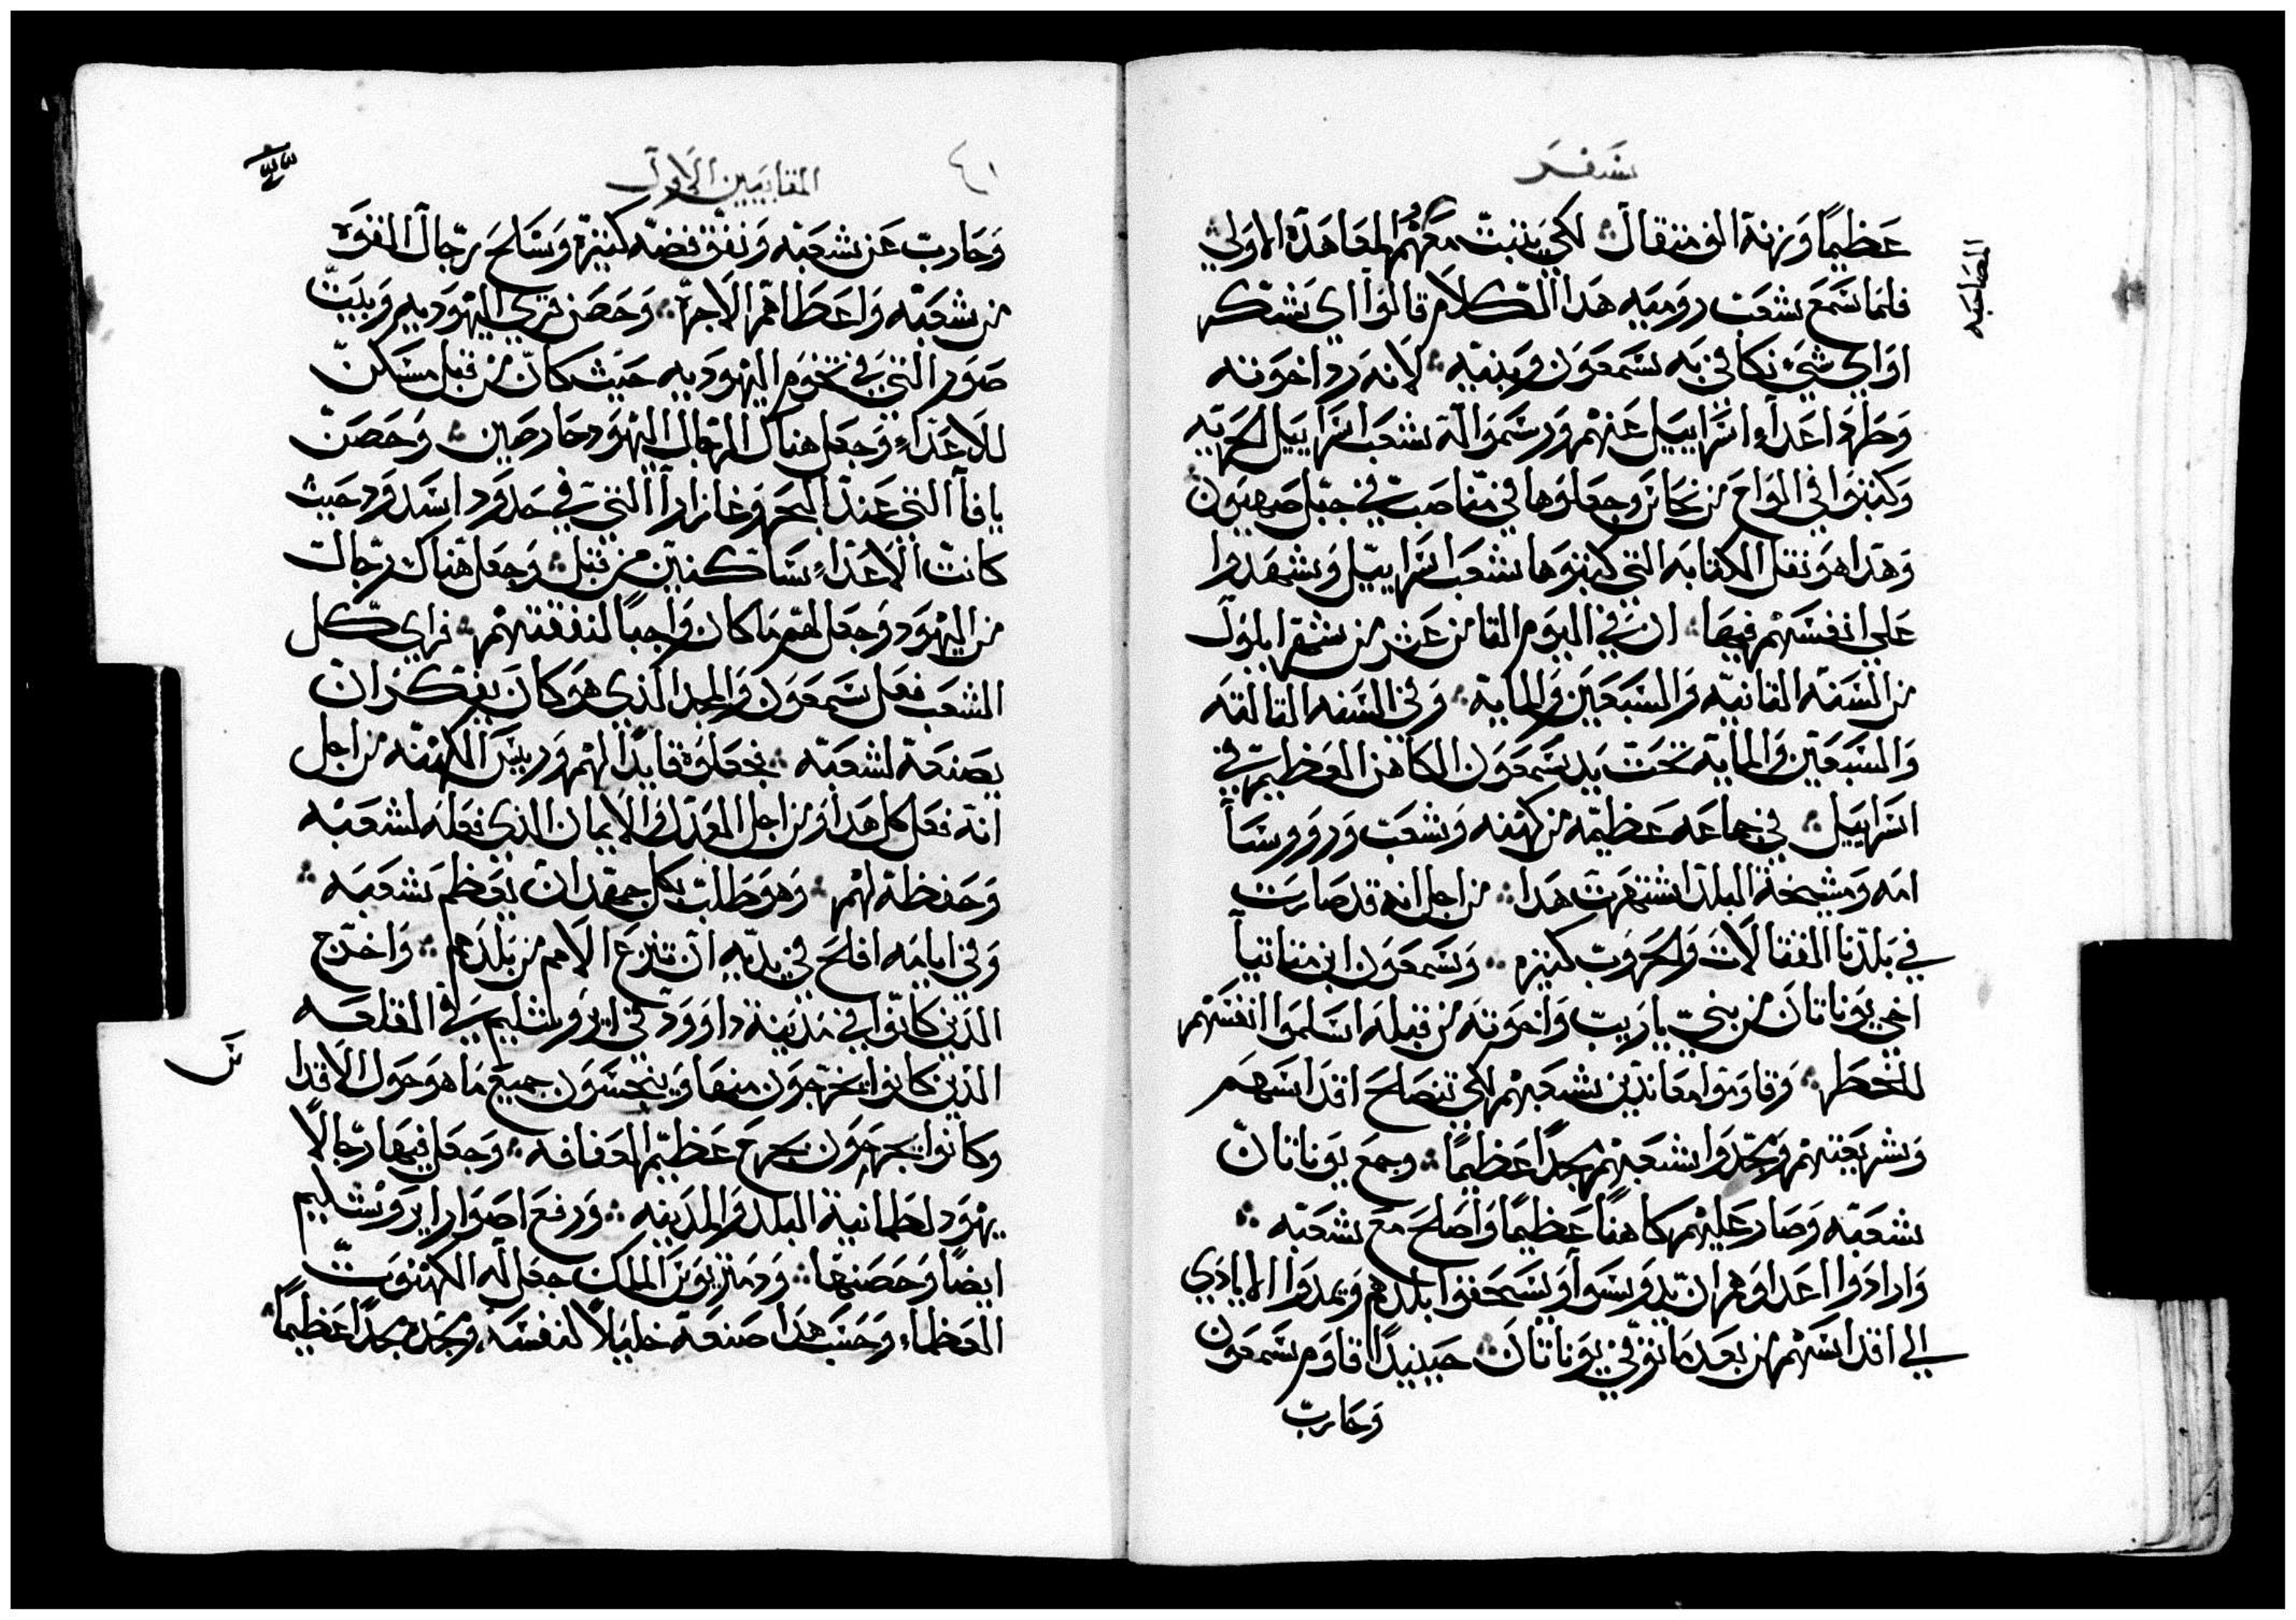 سفر
عظيمًا وزنة الف متقال لكي يتبت معهم المعاهدة الاولي
المصاحبه
فلما سمع شعب روميه هدا الكلام قالوا اي شكر
او اي شيء نكافي به سمعون وبنيه لانه رد اخوته
وطرد اعداء اسراييل عنهم ورسموا له شعب اسراييل الحريه
وكتبوا في الواح من نحاس وجعلوها في مناصب في جبل صهيون
وهدا هو نقل الكتابه التي كتبوها شعب اسراييل وشهدوا
علي انفسهم فيها ان في اليوم التامن عشر من شهر ايلول
من السنه التانيه والسبعين والمايه وفي السنه التالته
والسبعين والمايه تحت يد سمعون الكاهن العظيم في
اسراييل في جماعه عظيمه من كهنه وشعب وروورسا
امه ومشيخة البلد اشتهرت هدا من اجل انه قد صارت
في بلدنا القتالات والحروب كتيره وسمعون ابن متاتيا
اخي يوناتان من بني ياريب واخوته من قبله اسلموا انفسهم
للخطر وقاوموا معاندين شعبهم لكي تنصلح اقداسهم
وشريعتهم ومجدوا شعبهم مجدًا عظيمًا وجمع يوناتان
شعبه وصار عليهم كاهنًا عظيمًا واصلح مع شعبه
وارادوا اعداوهم ان يدوسوا ويسحقوا بلدهم ويمدوا الايادي
الي اقداسهم من بعد ما توفي يوناتان حينيدًا قاوم سمعون
وحارب
المقابيين الاول
٤١
وحارب عن شعبه ونفق فضه كتيرة وسلح رجال القوه
من شعبه واعطاهم الاجره وحصن قري اليهوديه وبيت
صور التي في تخوم اليهوديه حيث كان من قبل مسكن
للاعداء وجعل هناك الرجال اليهود حارصين وحصن
يافا التي عند البحر وغازارا التي في حدود اسدود حيث
كانت الاعداء ساكنين من قبل وجعل هناك رجال
من اليهود وجعل لهم ما كان واجبًا لنفقتهم فراي كل
الشعب فعل سمعون والمجد الدي هو كان يفتكر ان
يصنعه لشعبه فجعلوه قايدًا لهم ورييس الكهنه من اجل
انه فعل كل هدا ومن اجل العدل والايمان الدي فعله لشعبه
وحفظه لهم وهو طلب بكل جهد ان يعظم شعبه
وفي ايامه افلح في يديه ان تنزع الامم من بلدهم واخرج
الدين كانوا في مدينة داوود في ايروشليم في القلعه
الدين كانوا يخرجون منها وينجسون جميع ما هو حول الاقداس
وكانوا يجرحون بجرح عظيم العفافه وجعل فيها رجالًا
يهود لطمانية البلد والمدينه ورفع اصوار ايروشليم
ايضًا وحصنها ودمتريوس الملك جعل له الكهنوت
العظما وحسب هدا صنعه خليلًا لنفسه ومجده مجدًا عظيمًا